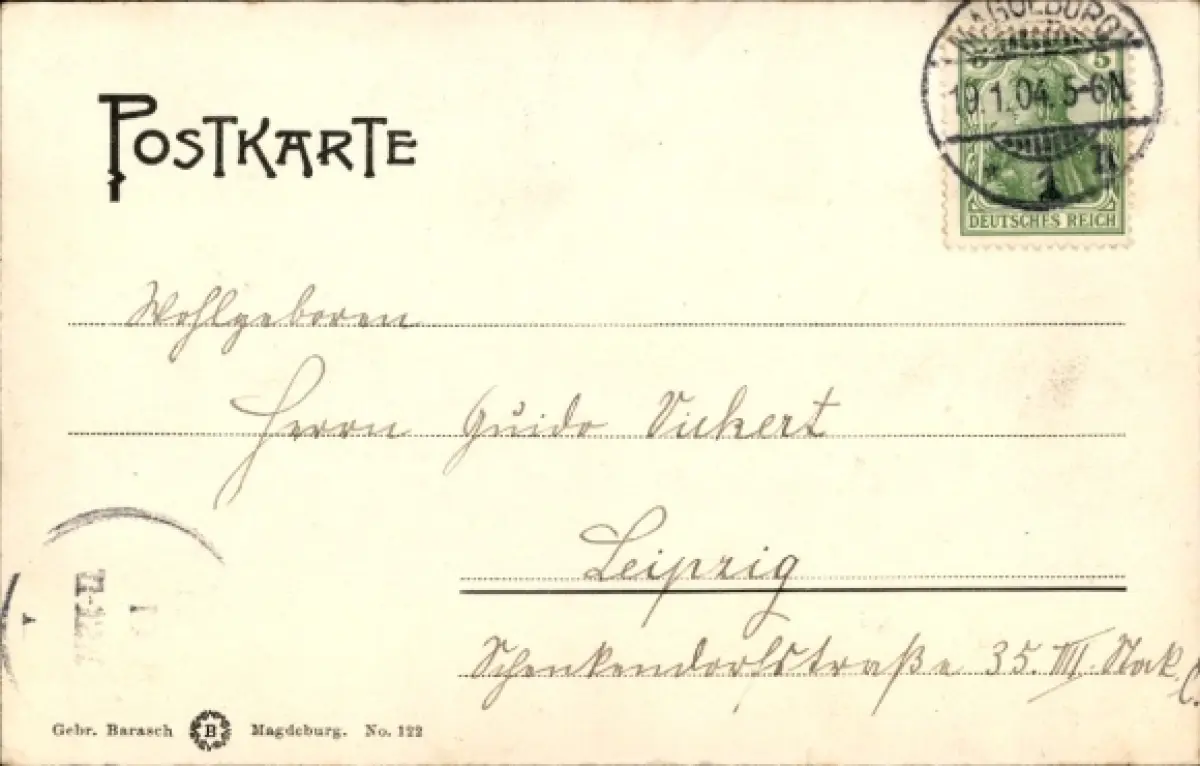 MAGDEBURG
5 5
19.1.04. 5-6N.
* 1 n
DEUTSCHES REICH
POSTKARTE
Wohlgeboren
Herrn Guido Vickert
Leipzig
Schenkendorfstraße 35. III.
Gebr. Barasch B Magdeburg. No. 122